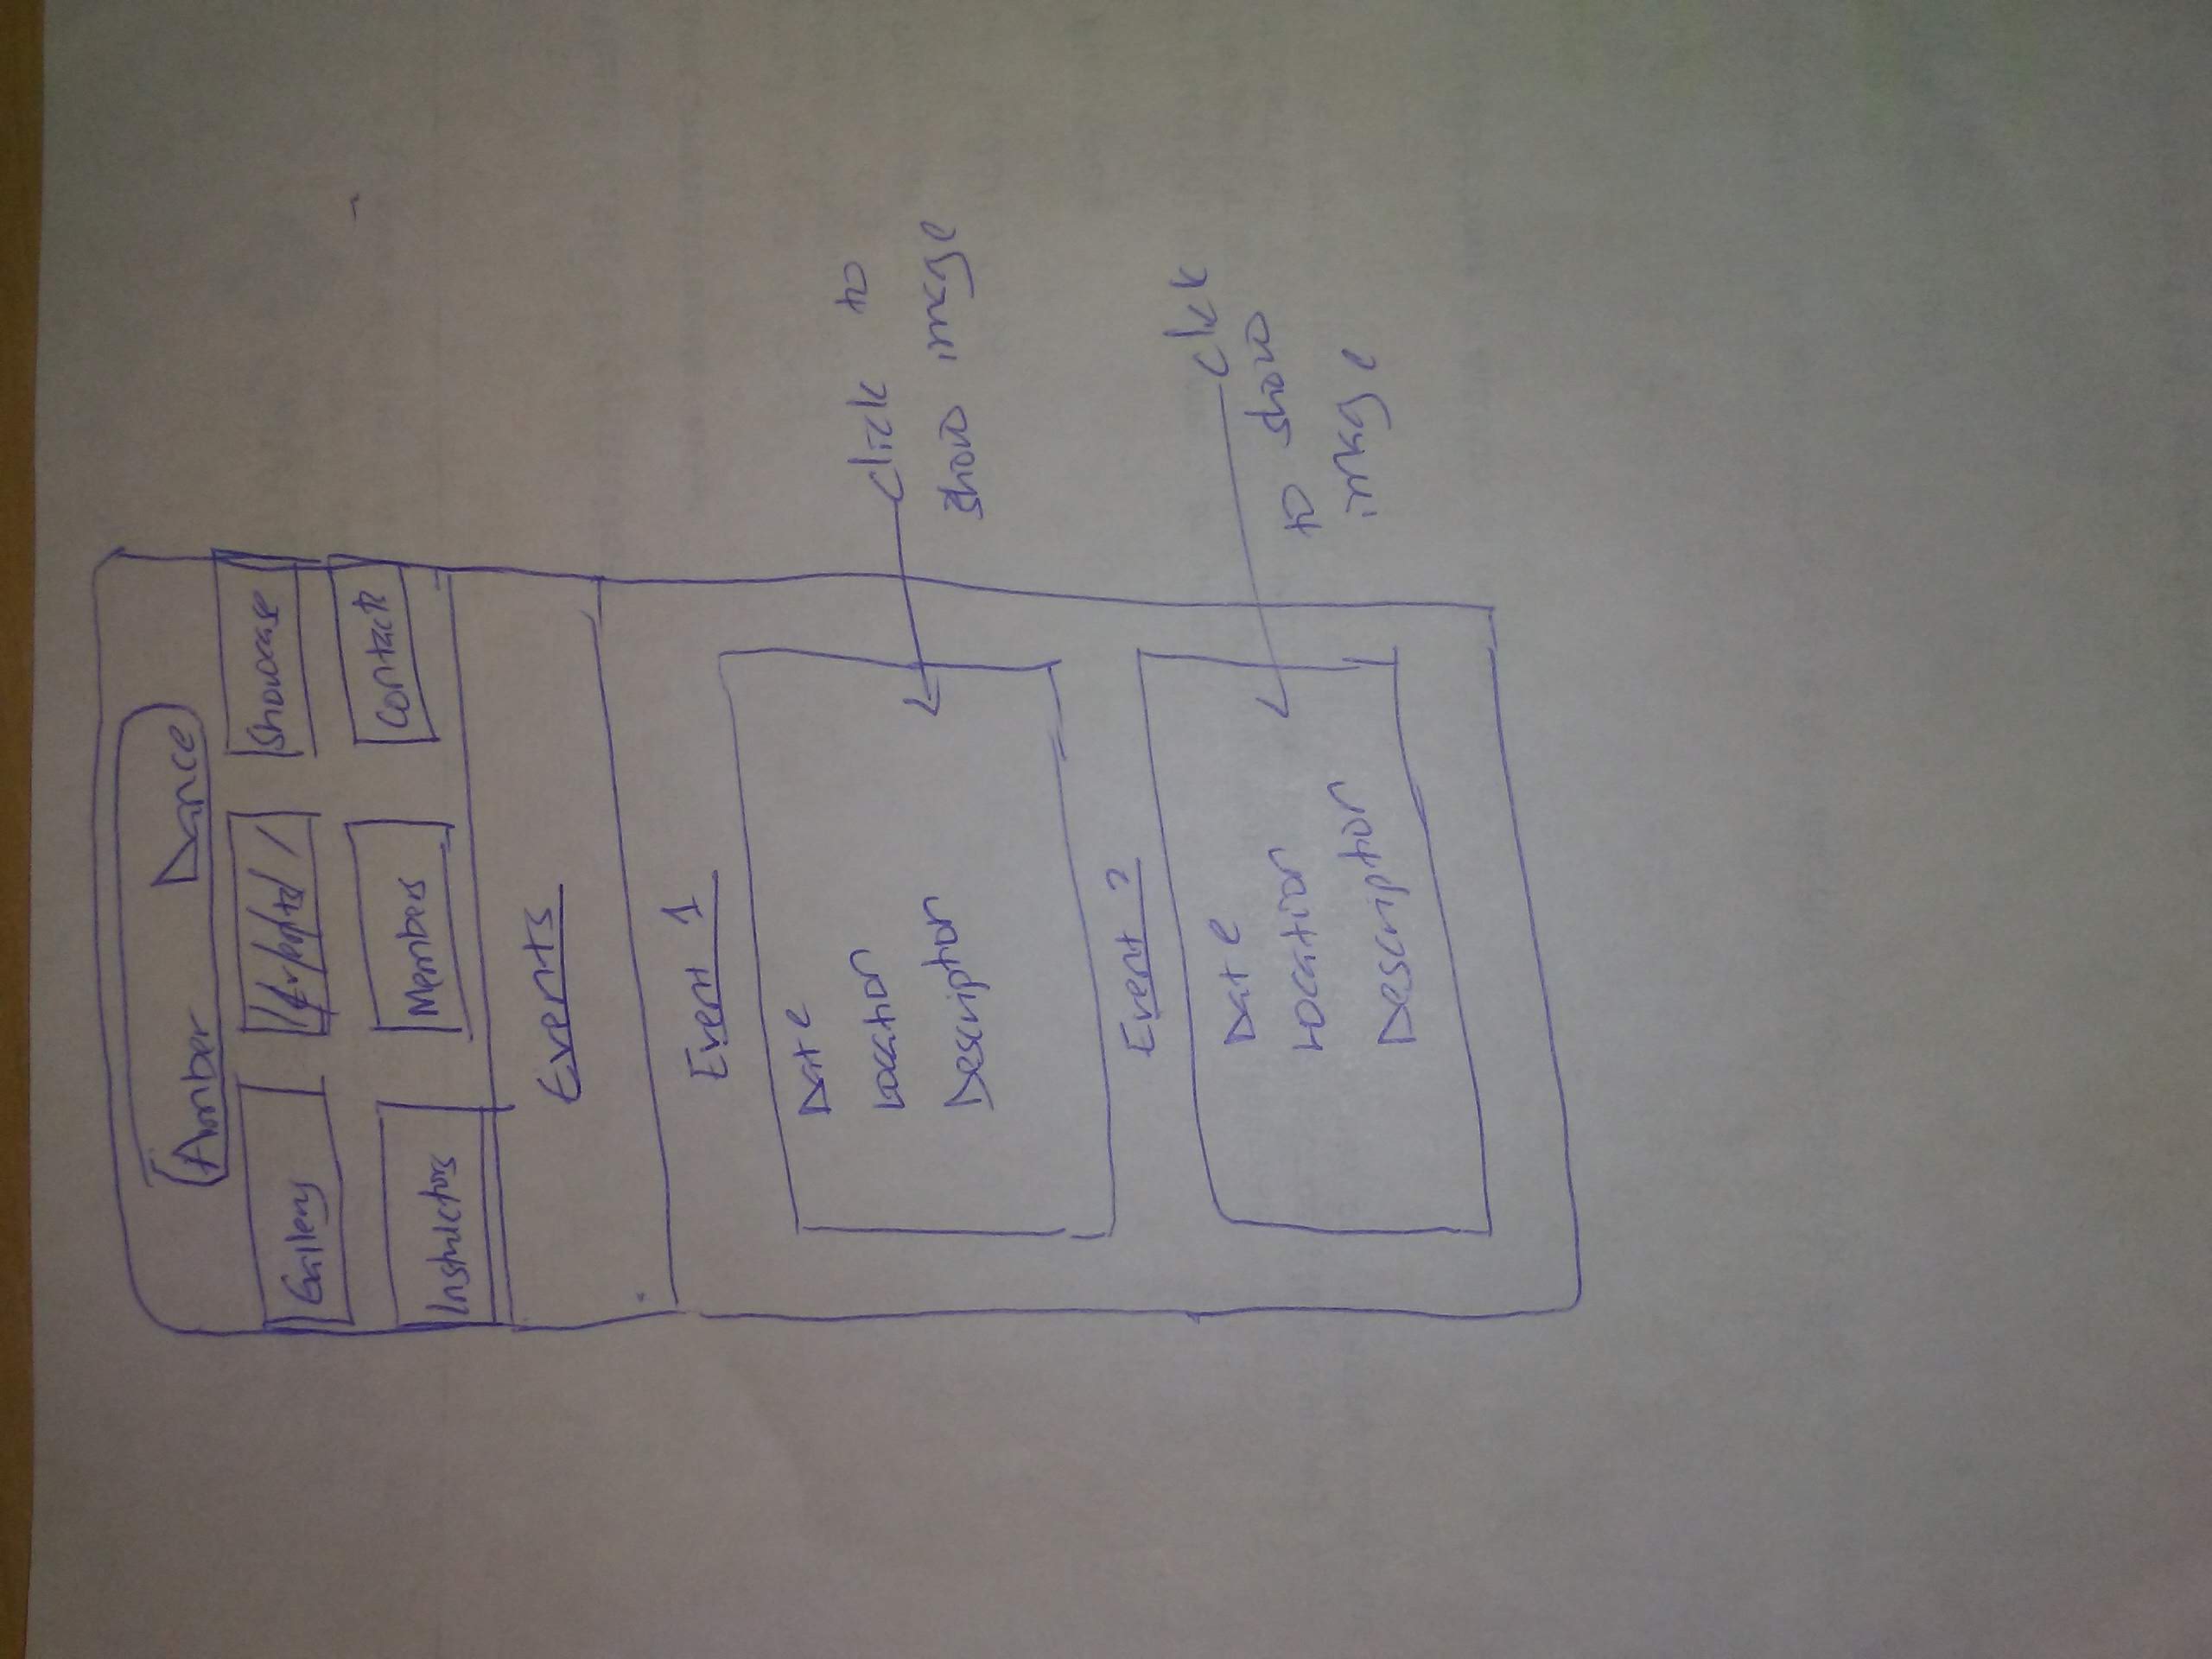 Amber Dance
Gallery Events Showcase
Instructors Members Contact
Events
Event 1
Date
Location
Description
click to
show image
Event 2
Date
Location
Description
clck
to show
image